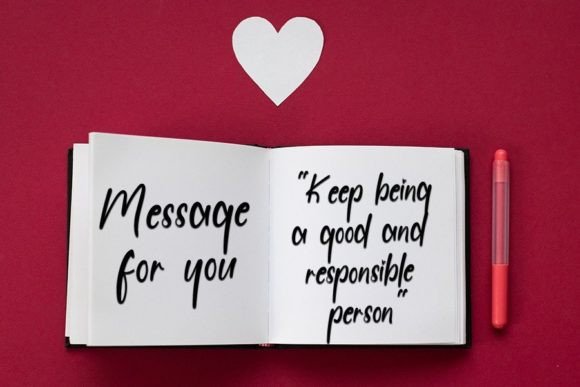 Message
for you
"Keep being
a good and
responsible
person"